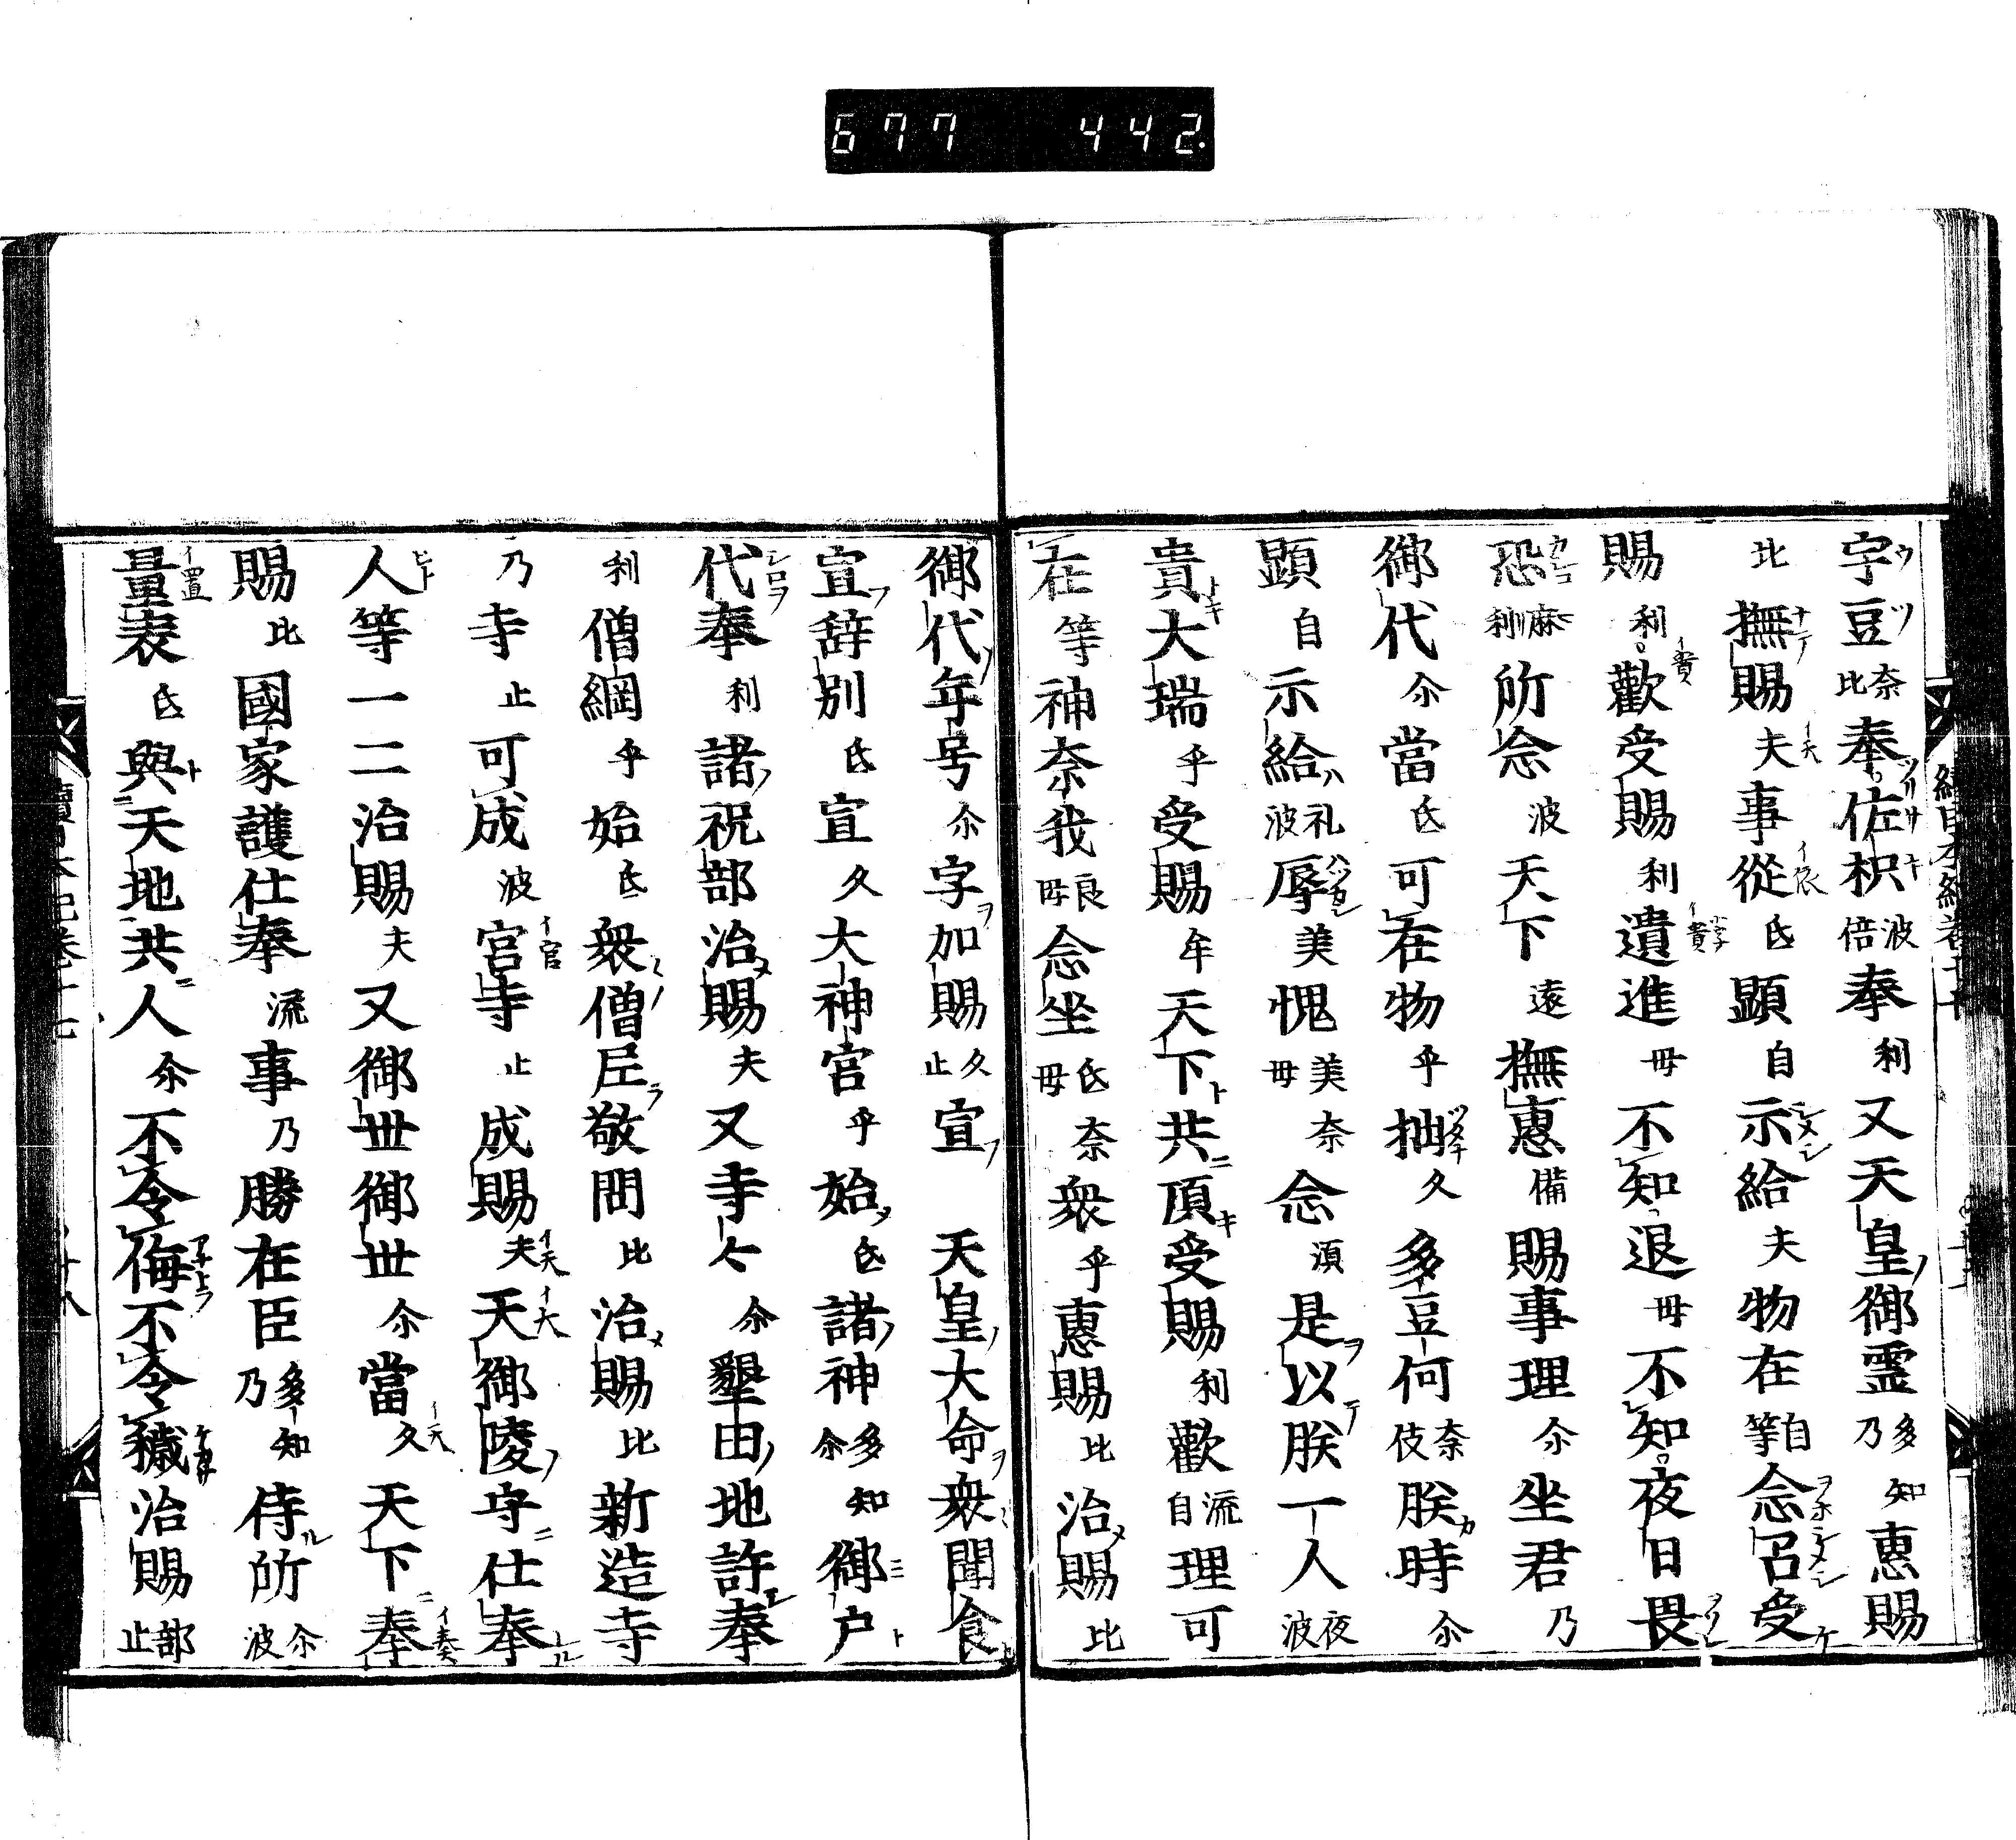 677 442.
字豆奈比奉佐枳波倍奉利又天皇御霊多知乃惠賜
比撫賜夫事從氐顯自示給夫物在自等念召受
賜利歡受賜利遺進毋不知退毋不知夜日畏
恐麻利所念波天下遠撫惠備賜事理尒坐君乃
御代尒當氐可在物乎拙久多豆何奈伎朕時尒
顯自示給礼波辱美愧美毋奈念湏是以朕一人夜波
貴大瑞乎受賜牟天下共頂受賜利歡流自理可
在等神奈我良毋念坐氐毋奈衆乎惠賜比治賜比
御代年号尒字加賜久止宣天皇大命衆聞食
宣辞別氐宣久大神宮乎始氐諸神多知尒御戸
代奉利諸祝部治賜夫又寺々尒墾田地許奉
利僧綱乎始氐衆僧尼敬問比治賜比新造寺
乃寺止可成波宮寺止成賜夫天御陵守仕奉
人等一二治賜夫又御世御世尒當久天下奉
賜比國家護仕奉流事乃勝在臣多知乃侍所尒波
量表氐與天地共人尒不令侮不令穢治賜部止